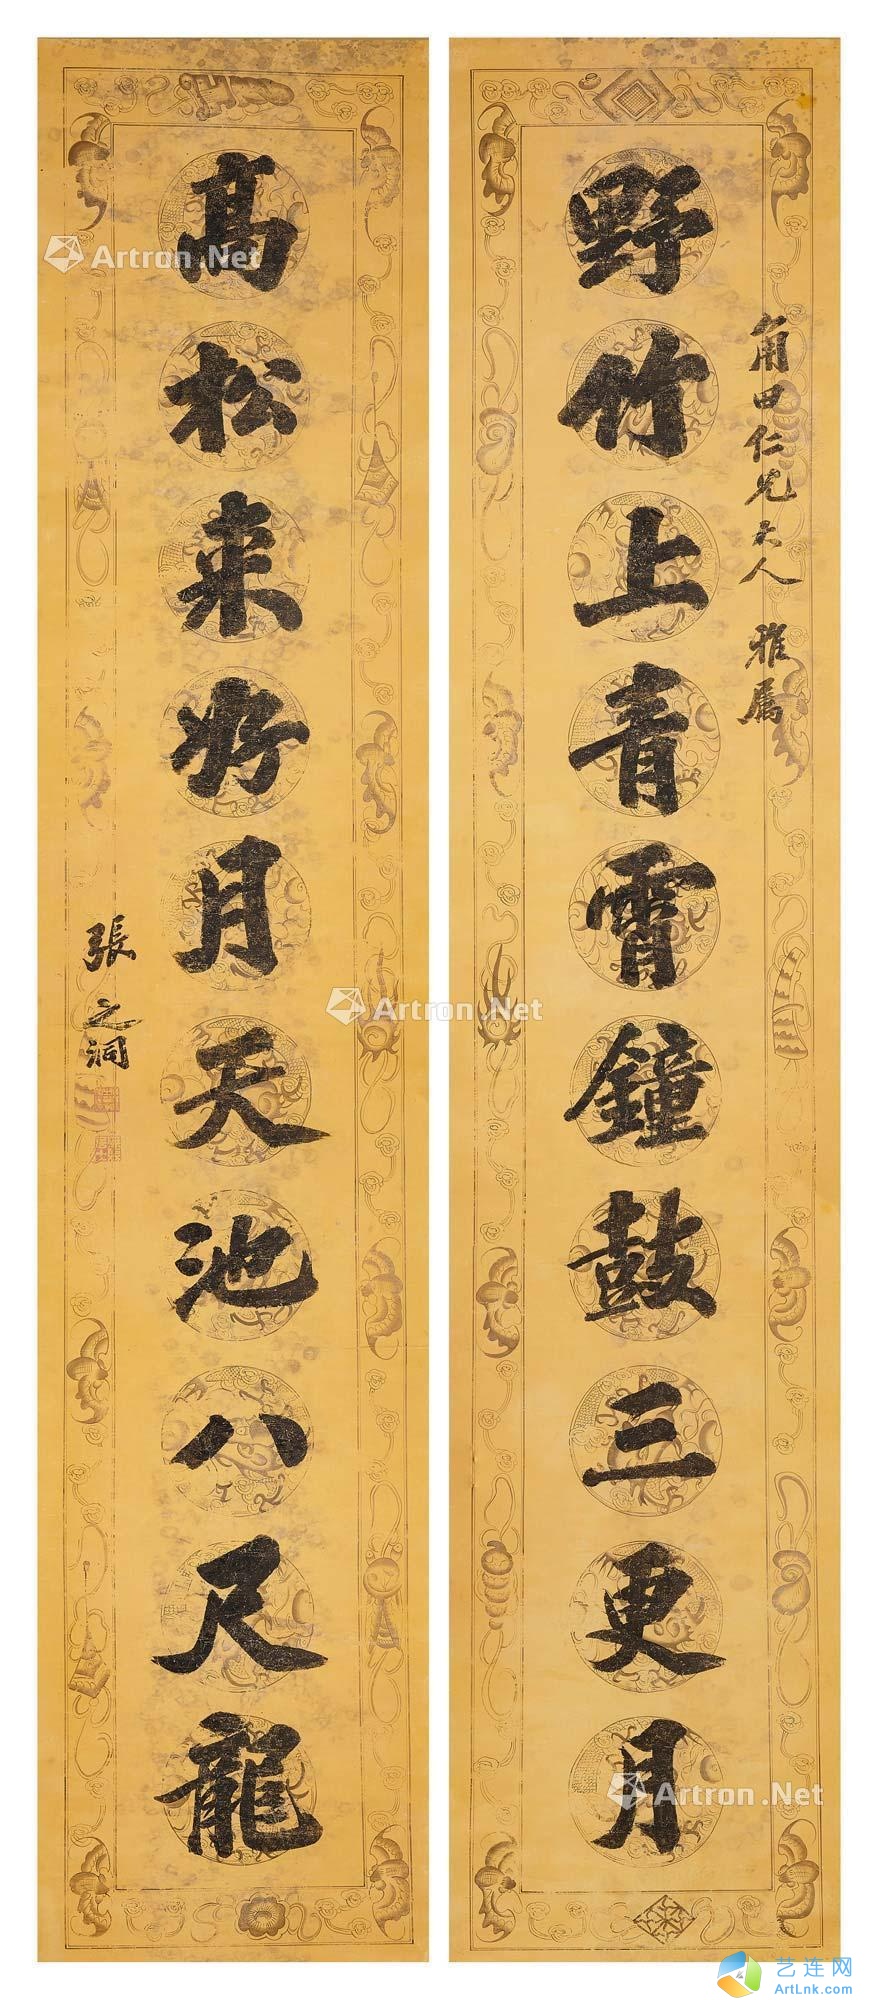 野竹上青霄鐘鼓三更月
角田仁兄大人 雅属
高松来好月天池八尺龍
張之洞
Artron.Net
Artron.Net
Artron.Net
艺连网
ArtLnk.com